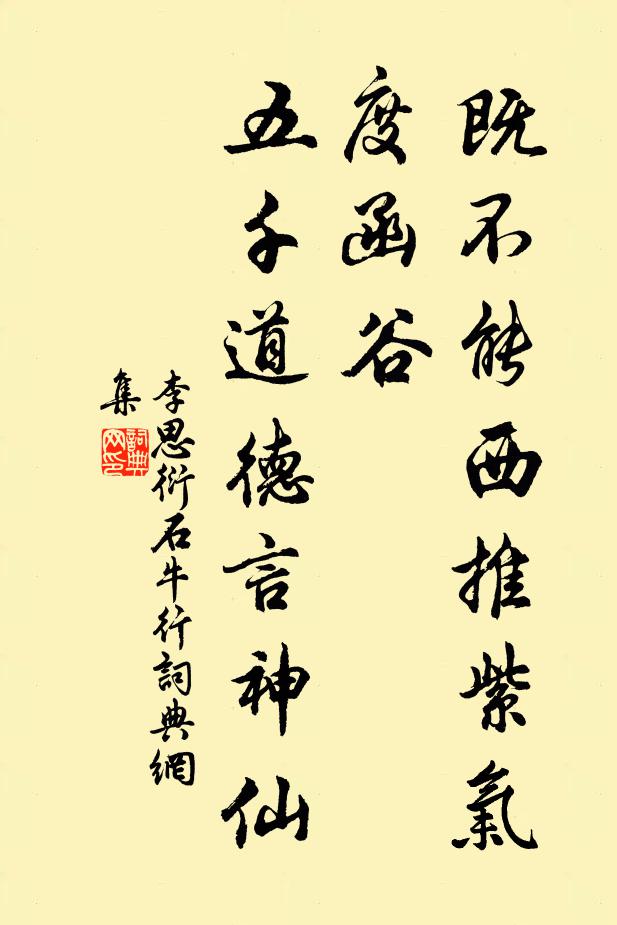 既不能西推紫氣
度函谷
五千道德言神仙
李思衍石牛行詞典網
集
詞典
网印